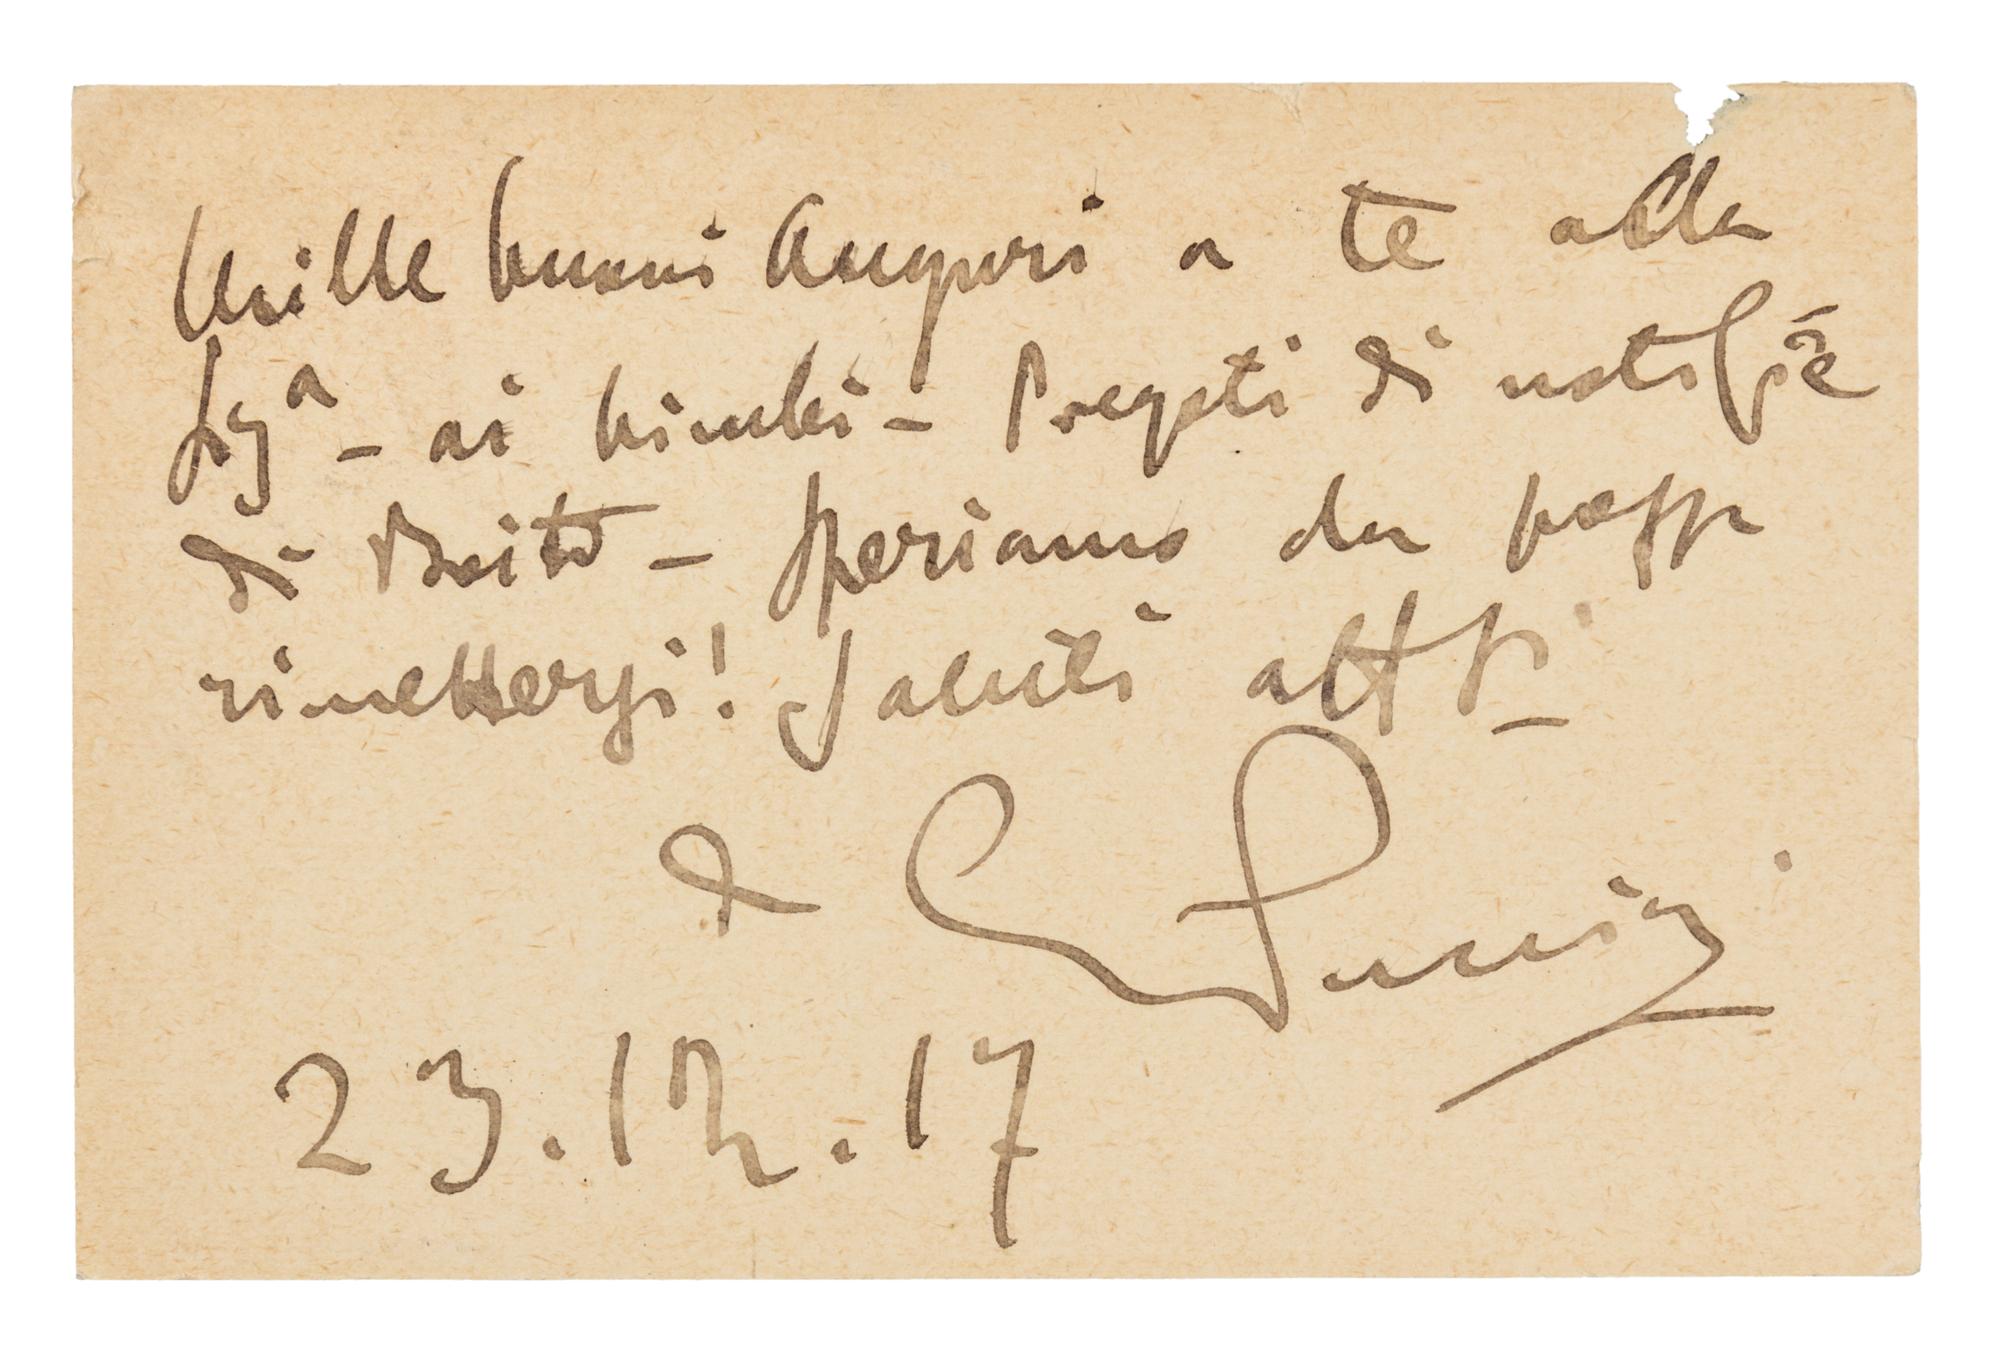 Mille buoni auguri a te alla
Sgª – ai bimbi – Pregoti di notizie
di Boito – Speriamo che possa
rimettersi! Saluti affi
GPuccini
23.12.17